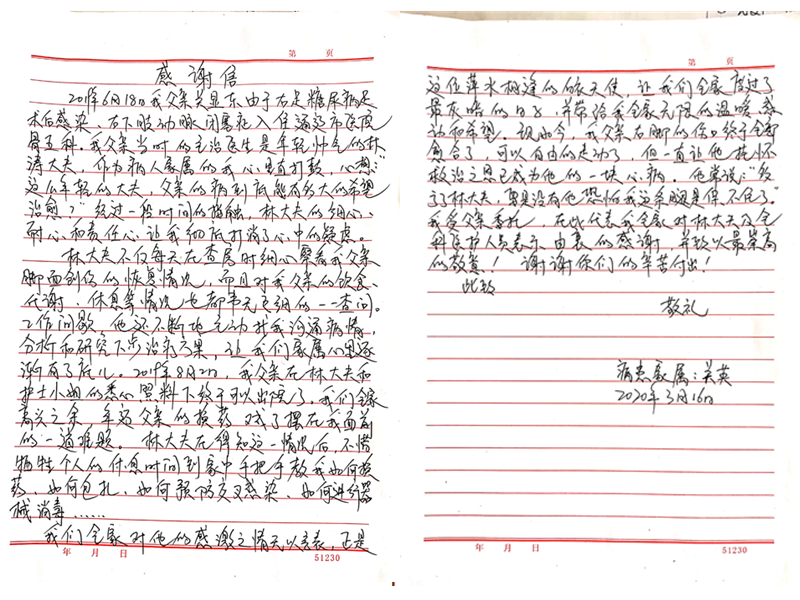 第 页
感谢信
2019年6月18日我父亲关显东由于右足糖尿病足
术后感染、右下肢动脉闭塞症入住通辽市医院
骨五科。我父亲当时的主治医生是年轻帅气的林
涛大夫，作为病人家属的我心里直打鼓，心想：“
这么年轻的大夫，父亲的病到底能有多大的希望
治愈？”经过一段时间的接触，林大夫的细心、
耐心和责任心，让我彻底打消了心中的疑虑。
林大夫不仅每天在查房时细心察看我父亲
脚面创伤的恢复情况，而且对我父亲的饮食、
代谢、休息等情况也都事无巨细的一一查问。
工作间歇，他还不断地主动找我沟通病情，
分析和研究下步治疗方案，让我们家属心里逐
渐有了底儿。2019年8月2日，我父亲在林大夫和
护士小姐的悉心照料下终于可以出院了。我们全家
高兴之余，年迈父亲的换药又成了摆在我面前
的一道难题。林大夫在得知这一情况后，不惜
牺牲个人的休息时间到家中手把手教我如何换
药、如何包扎、如何预防交叉感染、如何进行器
械消毒……
我们全家对他的感激之情无以言表，正是
年 月 日
51230
第 页
这位萍水相逢的白衣天使，让我们全家度过了
最灰暗的日子，并带给我全家无限的温暖、感
动和希望。现如今，我父亲右脚的伤口终于全部
愈合了，可以自由的走动了，但一直让他挂怀
救治之恩已成为他的一块心病。他常说：“多
亏了林大夫，要是没有他恐怕我这条腿是保不住了”。
我受父亲委托，在此代表我全家对林大夫及全
科医护人员表示由衷的感谢，并致以最崇高
的敬意！谢谢你们的辛苦付出！
此致
敬礼
病患家属：关英
2020年3月16日
年 月 日
51230